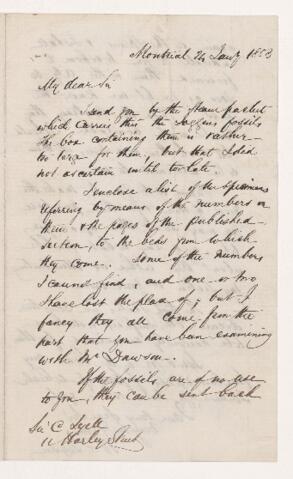 Montreal 24 Jany 1853
My dear Sir
I send you by the steam packet
which carries this the Joggins fossils
The box containing them is rather
too large for them, but that I did
not ascertain until too late.
I enclose a list of the specimens
referring by means of the numbers on
them & the pages of the published
section, to the beds from which
they come. Some of the numbers
I cannot find, and one or two
I have lost the place of; but I
fancy they all come from the
part that you have been examining
with Mr Dawson.
If the fossils are of no use
to you, they can be sent back
Sir C Lyell
11 Harley Street